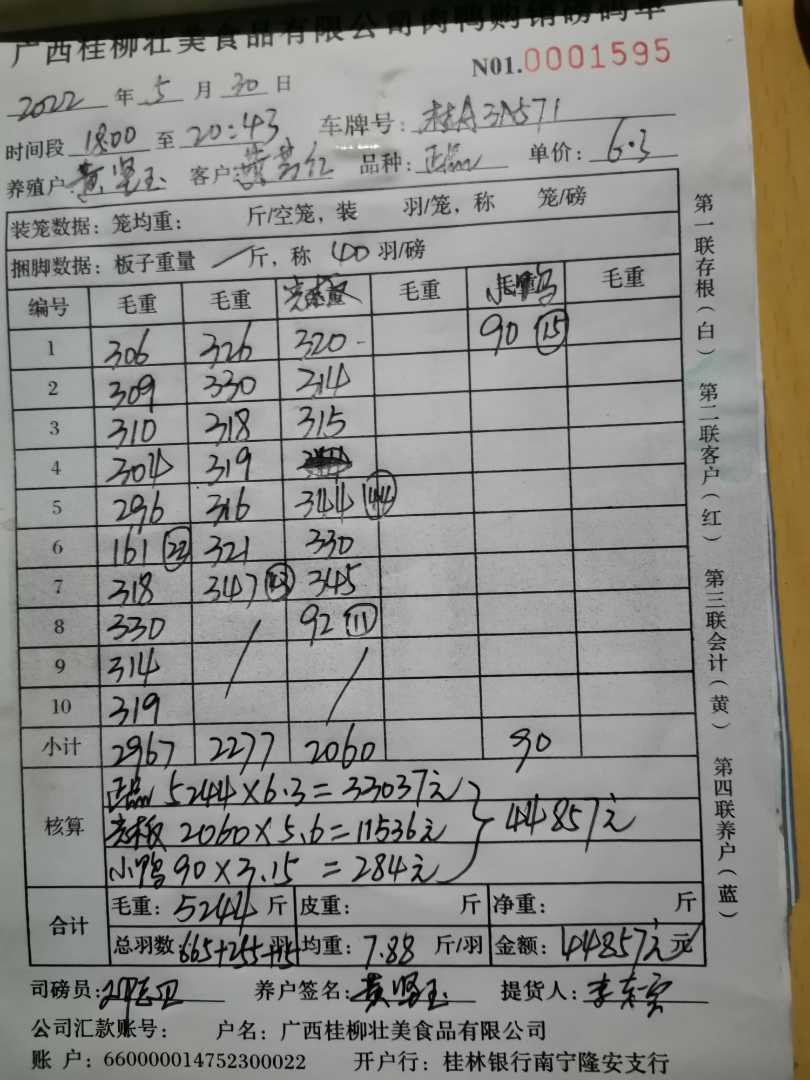 广西桂柳壮美食品有限公司肉鸭购销磅码单
N01.0001595
2022 年 5 月 30 日
时间段 18:00 至 20:43 车牌号: 桂A3A571
养殖户: 黄坚玉 客户: 品种: 正品 单价: 6.3
装笼数据: 笼均重: 斤/空笼, 装 羽/笼, 称 笼/磅
捆脚数据: 板子重量 / 斤, 称 40 羽/磅
编号 毛重 毛重 毛重 小鸭 毛重
1 306 326 320 90 (15)
2 309 330 314
3 310 318 315
4 304 319
5 296 316 344 (44)
6 161 (22) 321 330
7 318 347 (43) 345
8 330 / 92 (11)
9 314 /
10 319
小计 2967 2277 2060 90
核算
正品 5244×6.3=33037元
光板 2060×5.6=11536元
小鸭 90×3.15 =284元
44857元
合计
毛重: 5244 斤 皮重: 斤 净重: 斤
总羽数 665+255+15 均重: 7.88 斤/羽 金额: 44857元 元
司磅员: 养户签名: 黄坚玉 提货人:
公司汇款账号: 户名: 广西桂柳壮美食品有限公司
账 户: 660000014752300022 开户行: 桂林银行南宁隆安支行
第一联存根(白) 第二联客户(红) 第三联会计(黄) 第四联养户(蓝)